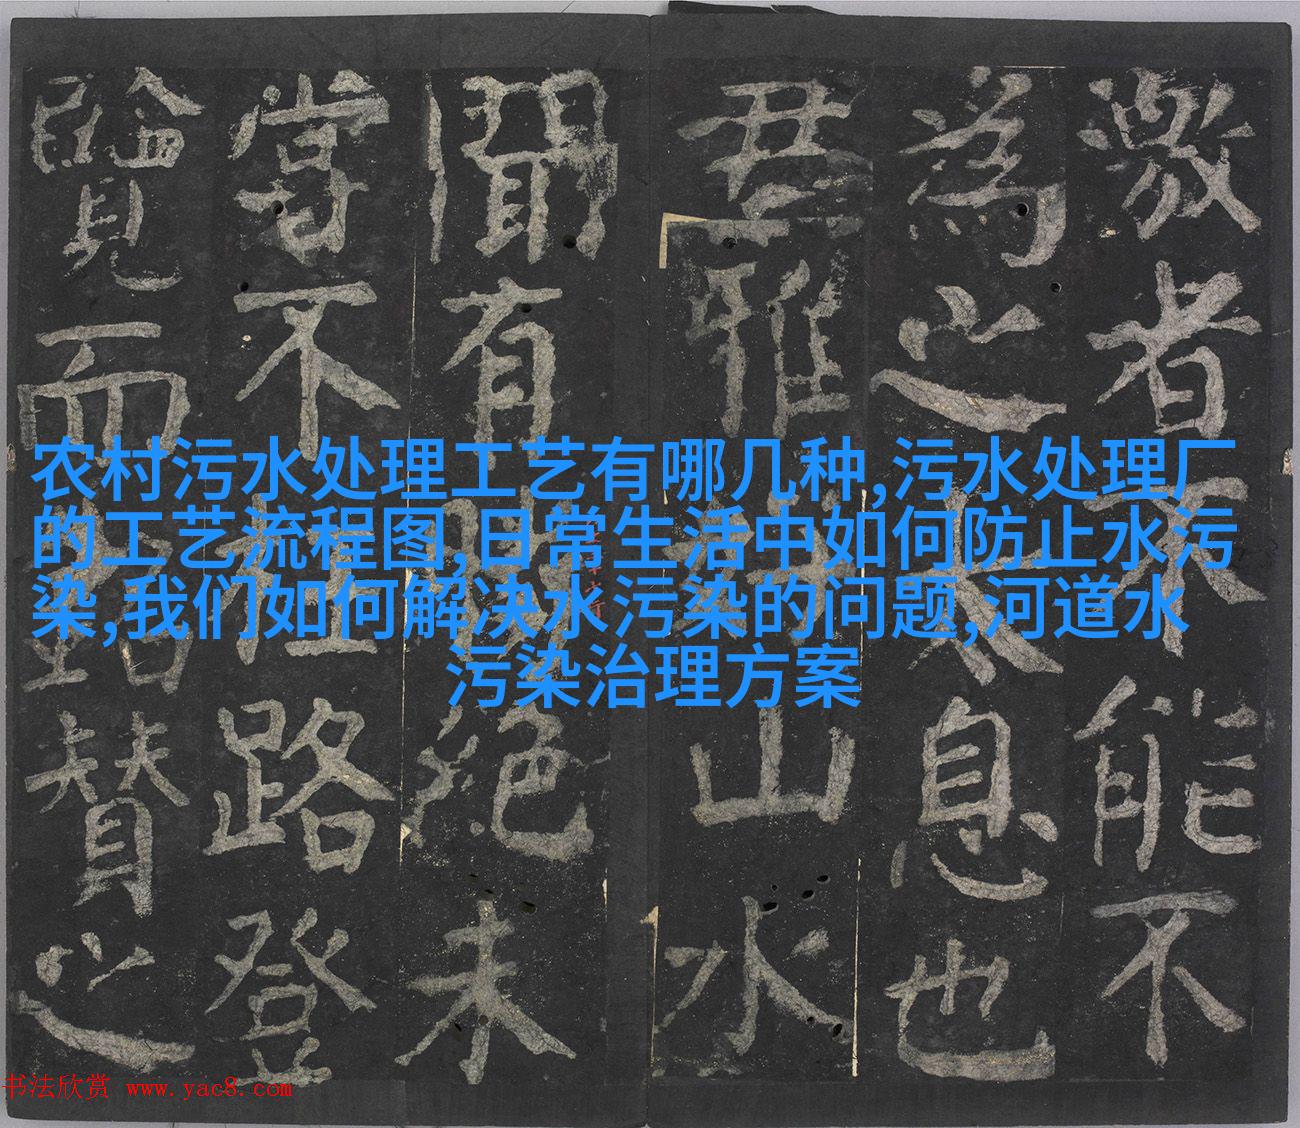 激者不能不
為之太息也
君雅山水
聞有絕未
嘗不路登
覽而贊之
农村污水处理工艺有哪几种,污水处理厂
的工艺流程图,日常生活中如何防止水污
染,我们如何解决水污染的问题,河道水
污染治理方案
书法欣赏 www.yac8.com